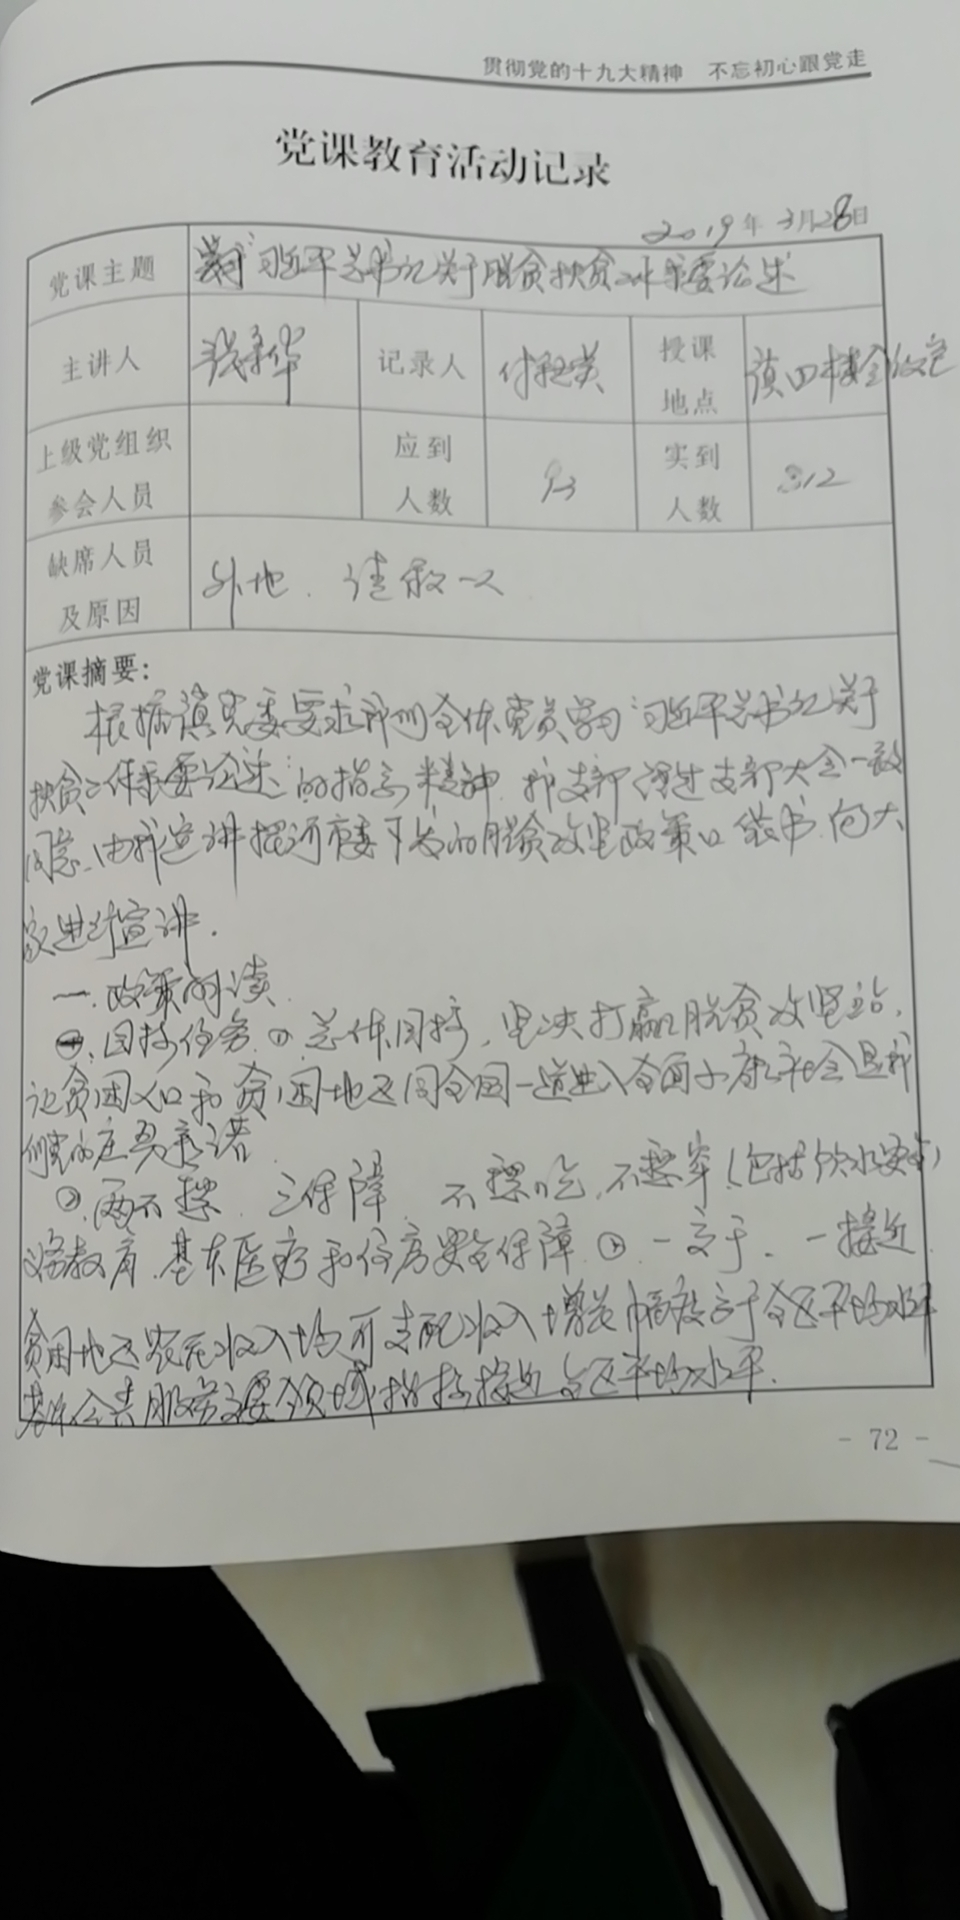 贯彻党的十九大精神 不忘初心跟党走
党课教育活动记录
2019年3月28日
党课主题 习近平总书记关于脱贫扶贫工作重要论述
主讲人 华 记录人 付 英 授课地点 镇四楼会议室
上级党组织参会人员 应到人数 93 实到人数
缺席人员及原因 外地、请假
党课摘要：
根据镇党委要求 全体党员学习“习近平总书记关于
扶贫工作重要论述”的指示精神，我支部通过支部大会一致
同意，由我宣讲 市委下发的脱贫攻坚政策口袋书，向大
家进行宣讲．
一．政策解读
目标任务 ①总体目标，坚决打赢脱贫攻坚战，
让贫困人口和贫困地区同全国一道进入全面小康社会是我
们党的庄严承诺
②两不愁 三保障 不愁吃、不愁穿（包括饮水安全）
义务教育、基本医疗和住房安全保障 ③一高于、一接近
贫困地区农民收入均可支配收入增长幅度高于全区平均水平
基本公共服务主要领域指标接近全区平均水平．
- 72 -